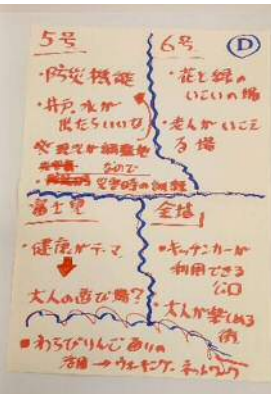 5号
・防災機能
・井戸、水が
出たらいいな
なので
災害時の
6号
D
・花と緑の
いこいの場
・老人がいこえ
る場
富士望
・健康がテーマ
大人の遊び場?
全塔
・キッチンカーが
利用できる
公口
・大人が楽しめる
街
・わらびりんご通りの
活用→ウォーキングネットワーク